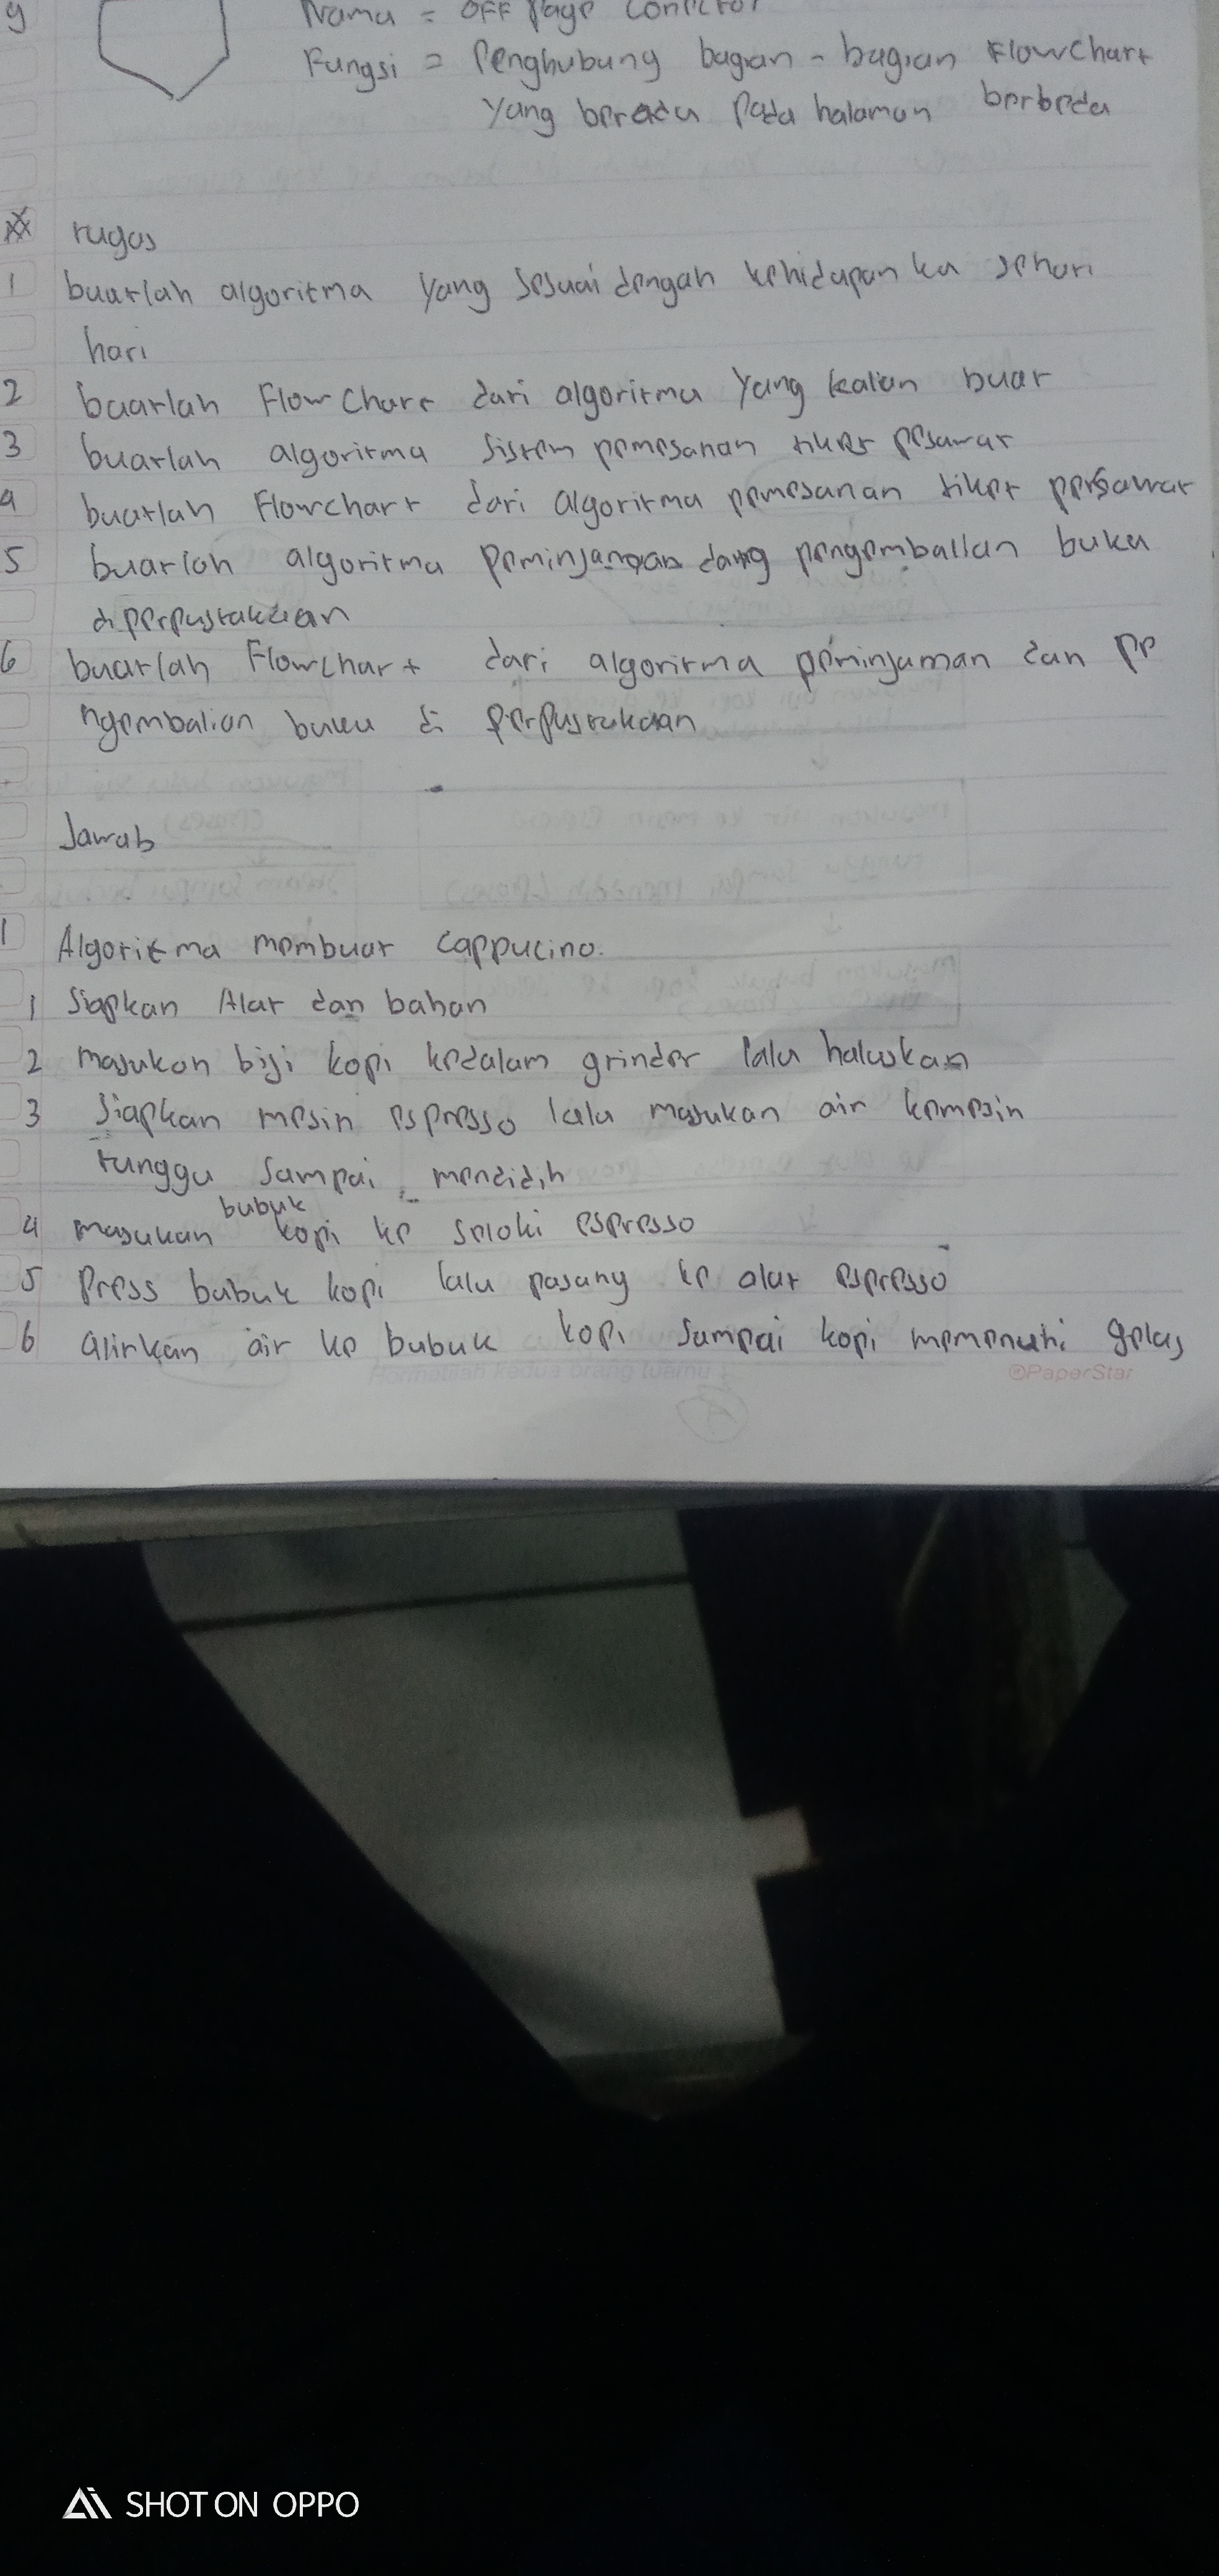 9
Nama = OFF page
Fungsi = Penghubung bagian - bagian Flowchart
yang berada pada halaman berbeda
Tugas
1 buatlah algoritma yang sesuai dengah kehidupan ka sehari
hari
2 buatlah Flow Chart dari algoritma yang kalian buat
3 buatlah algoritma sistem pemesanan tiket pesawat
4 buatlah Flowchart dari algoritma pemesanan tiket persawat
5 buatlah algoritma peminjangan dang pengemballan buku
diperpustakaan
6 buatlah Flowchart dari algoritma peminjaman dan pe
ngembalian buku di perpustakaan
Jawab
1 Algoritma membuat cappucino.
1 Siapkan Alat dan bahan
2 masukan biji kopi kedalam grinder lalu haluskan
3 Siapkan mesin espresso lalu masukan air kemesin
tunggu sampai mendidih
4 masukan bubuk kopi ke seloki espresso
5 Press bubuk kopi lalu pasang ke alat espresso
6 alirkan air ke bubuk kopi sampai kopi memenuhi gelas
Hormatilah kedua orang tuamu
©PaperStar
SHOT ON OPPO